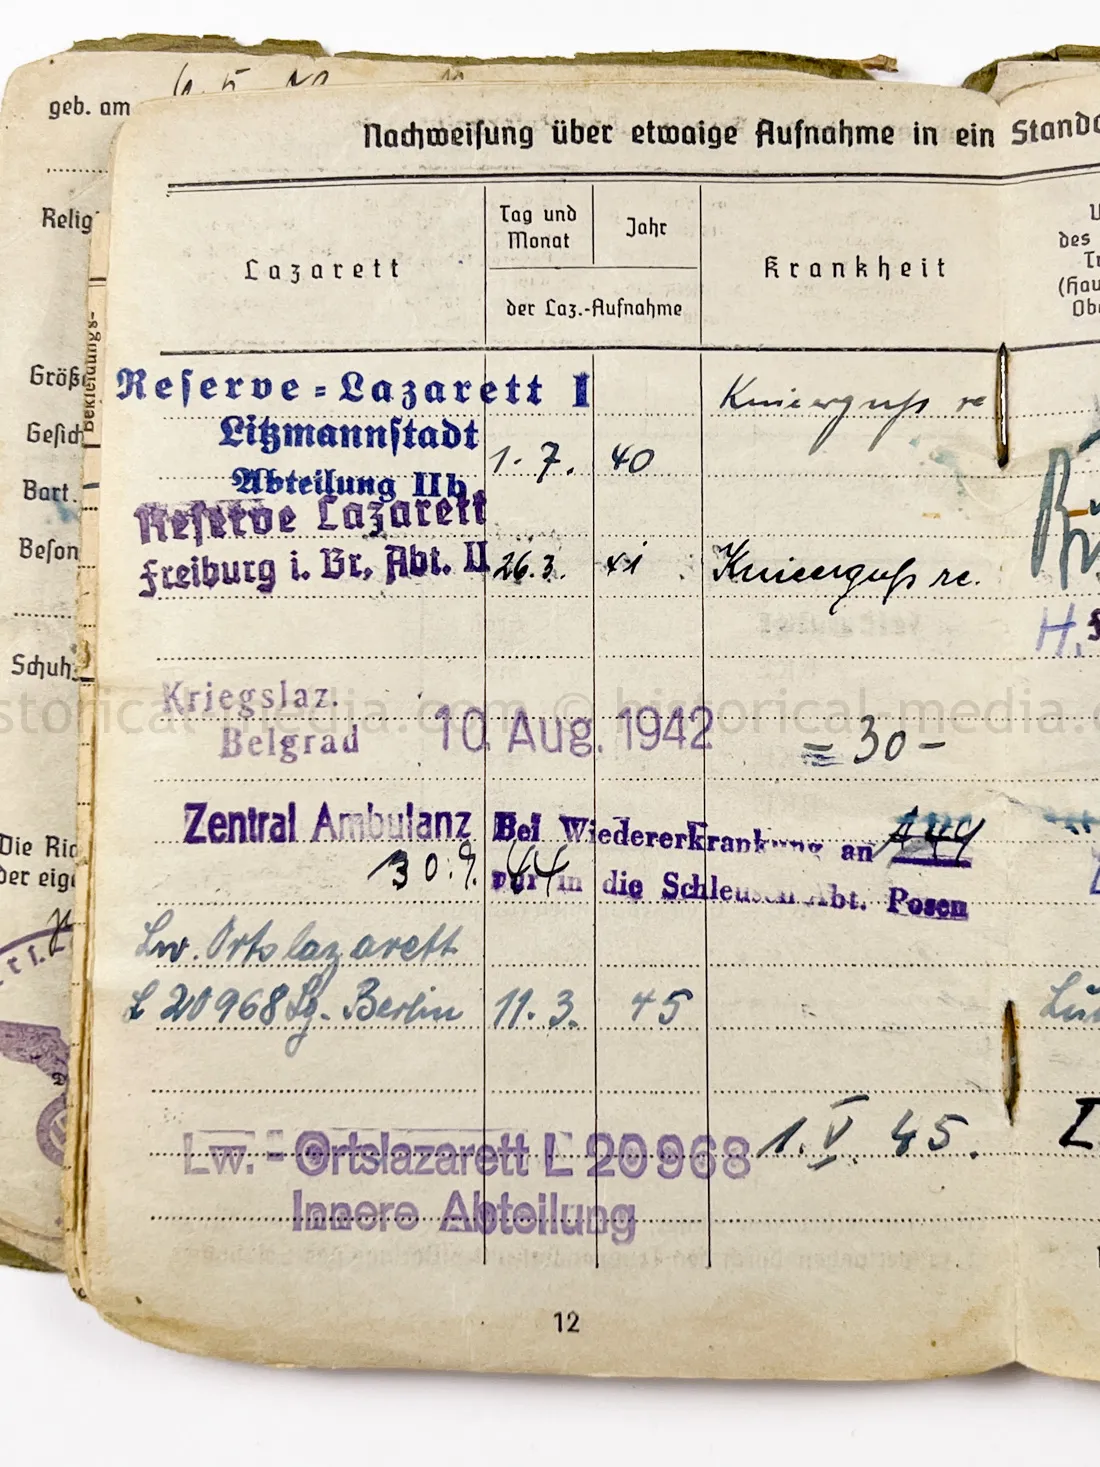 geb. am
Relig
Größe
Gesich
Bart.
Beson
Schuh
Die Ric
der eig
Bekleidungs-
Nachweisung über etwaige Aufnahme in ein Stando
Lazarett
Tag und
Monat
Jahr
der Laz.-Aufnahme
Krankheit
des
(Hau
Obe
Reserve-Lazarett I
Litzmannstadt
Abteilung IIb
1. 7. 40
Knieerguß re
Reserve Lazarett
Freiburg i. Br. Abt. II
26.3. 41 Knieerguß re.
H.
Kriegslaz.
Belgrad
10. Aug. 1942
= 30 -
historical-media.com © historical-media.
Zentral Ambulanz
30.9. 44
Bei Wiedererkrankung an
nur in die Schleusen Abt. Posen
Lw. Ortslazarett
L 20968 Lg. Berlin 11. 3. 45
Lw.-Ortslazarett L 20968
Innere Abteilung
1. V. 45.
12